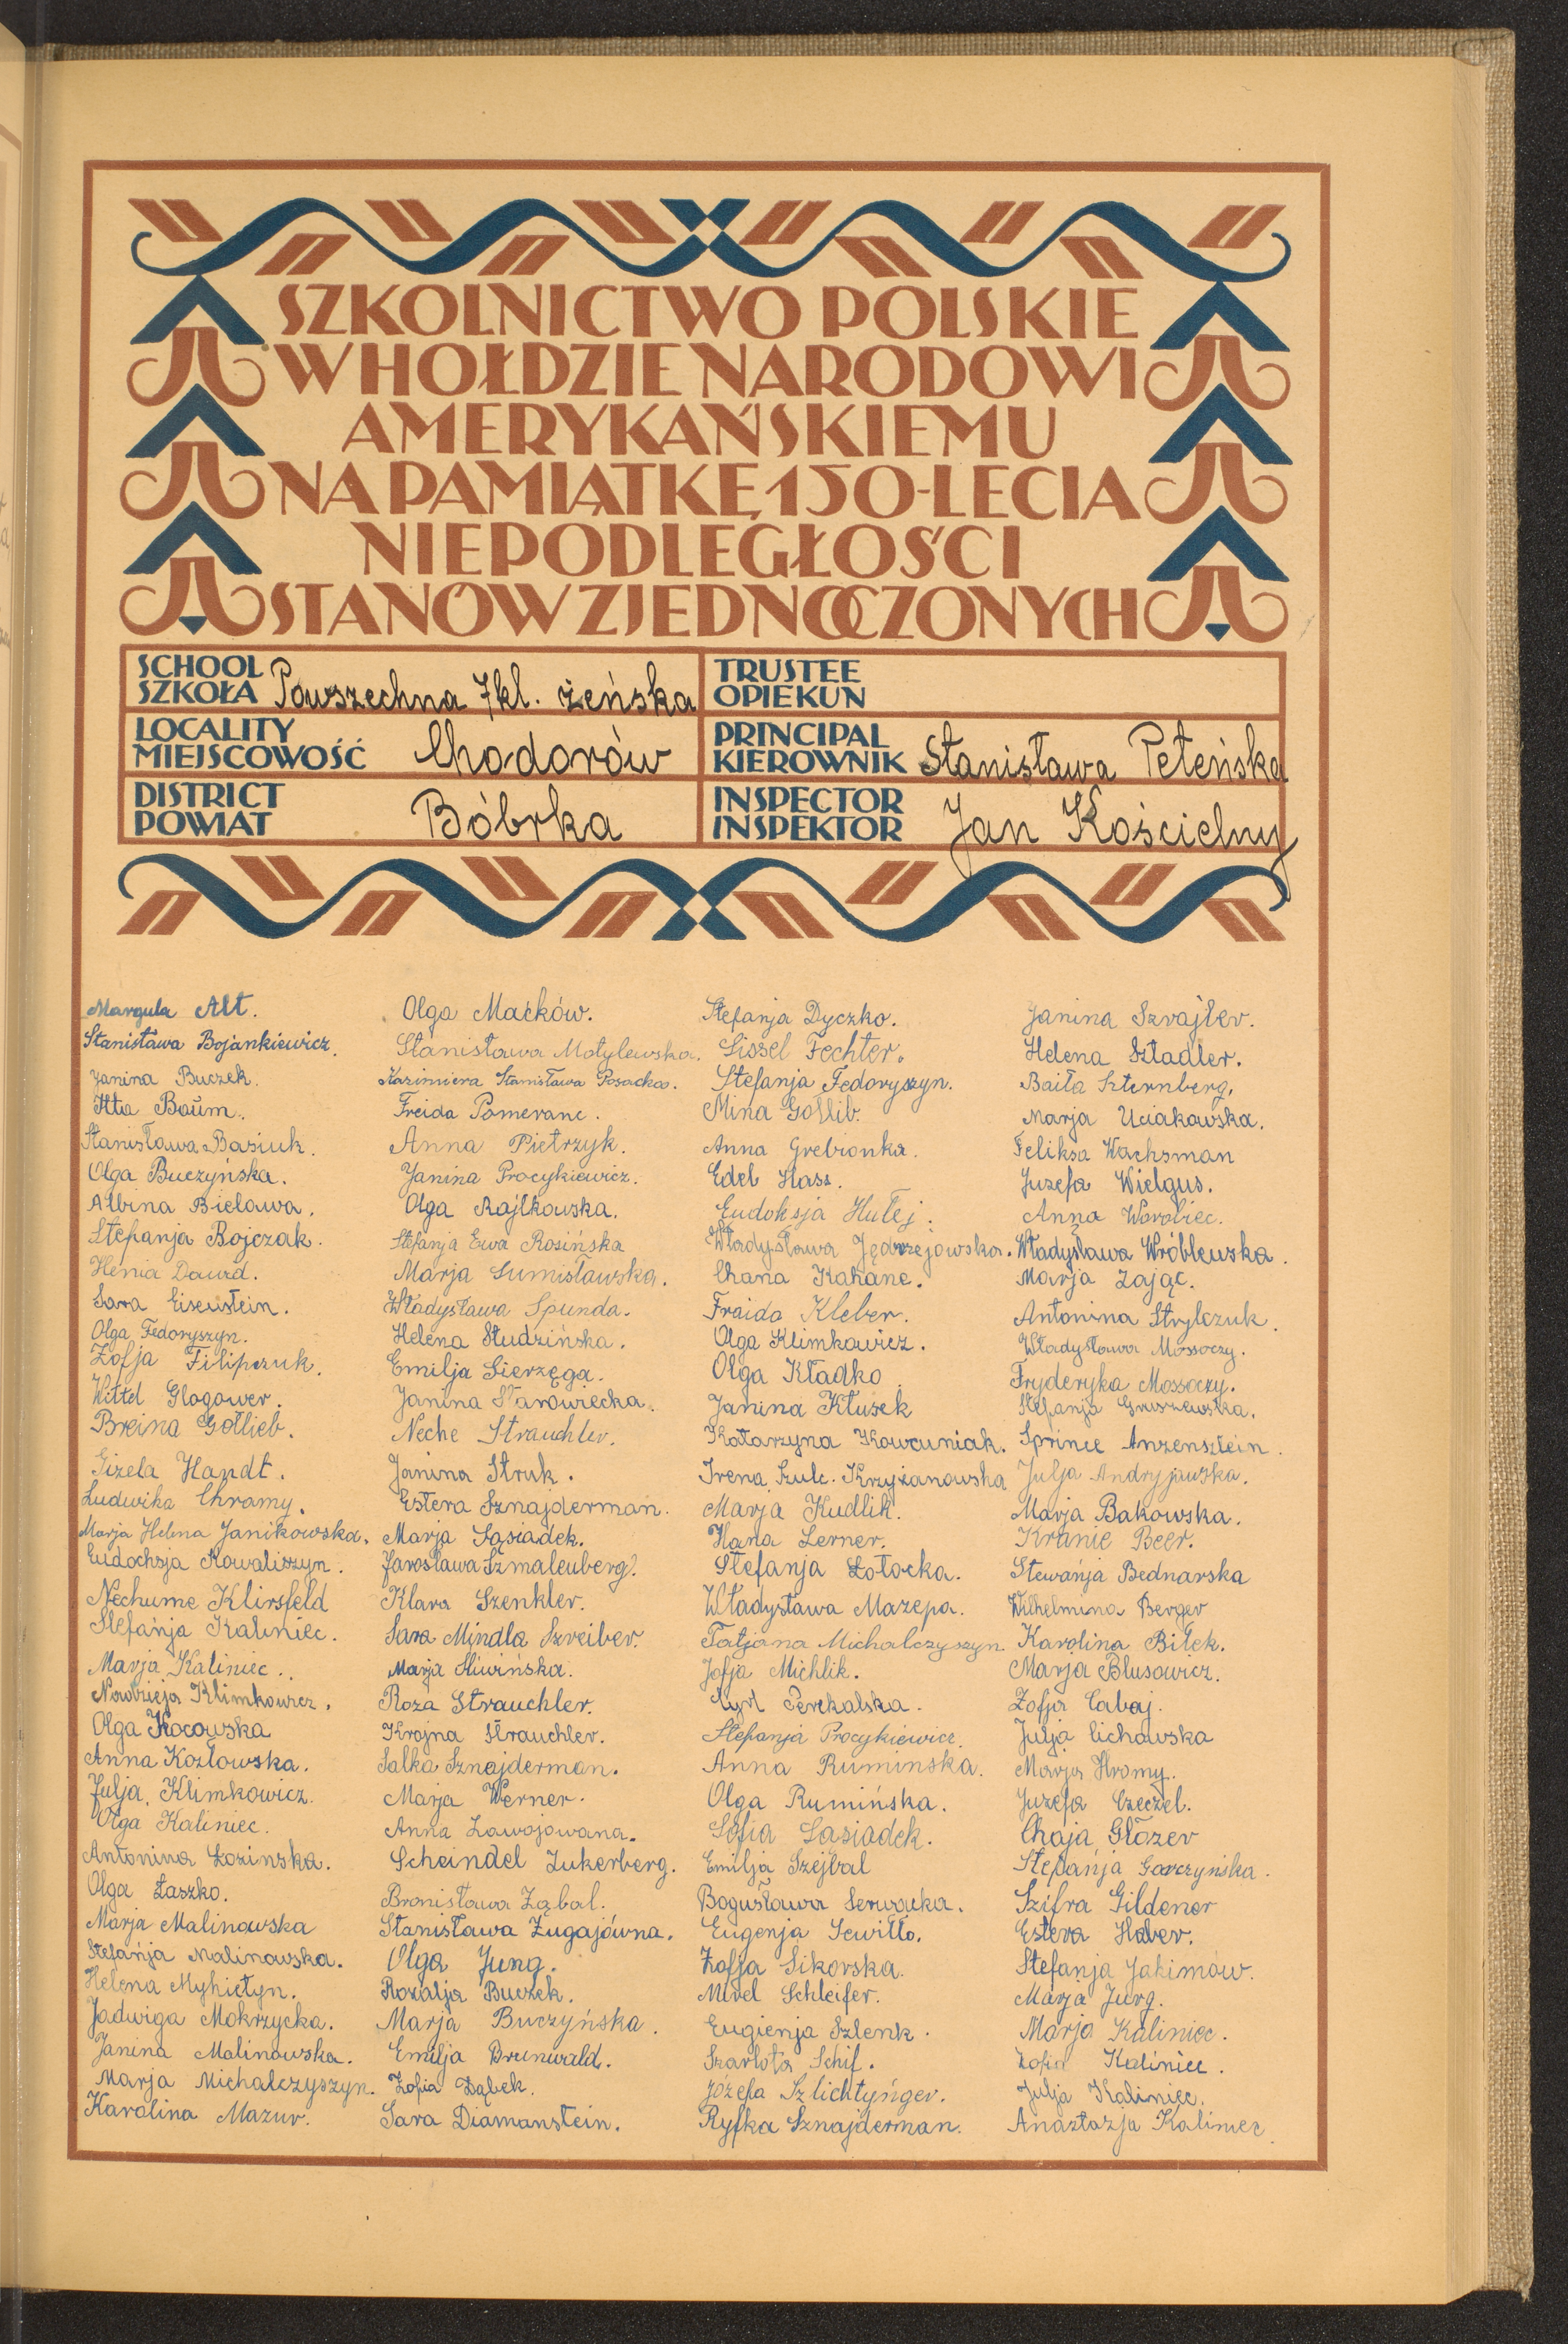 SZKOLNICTWO POLSKIE
W HOŁDZIE NARODOWI
AMERYKAŃSKIEMU
NA PAMIĄTKĘ 150-LECIA
NIEPODLEGŁOŚCI
STANÓW ZJEDNOCZONYCH
SCHOOL
SZKOŁA Powszechna 7kl. żeńska
TRUSTEE
OPIEKUN
LOCALITY
MIEJSCOWOŚĆ Chodorów
PRINCIPAL
KIEROWNIK Stanisława Peteńska
DISTRICT
POWIAT Bóbrka
INSPECTOR
INSPEKTOR Jan Kościelny
Margula Alt.
Stanisława Bojankiewicz.
Janina Buczek.
Itta Baum.
Stanisława Basiuk.
Olga Buczyńska.
Albina Bielawa.
Stefanja Bojczak.
Henia Dawid.
Sara Eisenstein.
Olga Fedoryszyn.
Zofja Filipczuk.
Wittel Glogower.
Breina Gotlieb.
Gizela Handt.
Ludwika Chramy.
Marja Helena Janikowska.
Eudochsja Kowaliszyn.
Nechume Klirsfeld
Stefanja Kaliniec.
Marja Kaliniec.
Klimkowicz.
Olga Kocowska
Anna Kozłowska.
Julja Klimkowicz.
Olga Kaliniec.
Antonina Łozinska.
Olga Łaszko.
Marja Malinowska
Stefanja Malinowska.
Helena Myhietyn.
Jadwiga Mokrzycka.
Janina Malinowska.
Marja Michalczyszyn.
Karolina Mazur.
Olga Maćków.
Stanisława Motylewska.
Kazimiera Stanisława Posacka.
Freida Pomeranc.
Anna Pietrzyk.
Janina Procykiewicz.
Olga Rajtkowska.
Stefanja Ewa Rosińska
Marja Sumisławska.
Władysława Spunda.
Helena Studzińska.
Emilja Sierzęga.
Janina Starowiecka.
Neche Strauchler.
Janina Struk.
Estera Sznajderman.
Marja Sąsiadek.
Jarosława Szmalenberg.
Klara Szenkler.
Sara Mindla Szreiber.
Marja Śliwińska.
Roza Strauchler.
Krajna Strauchler.
Salka Sznajderman.
Marja Werner.
Anna Zawojowana.
Scheindel Zukerberg.
Bronisława Ząbal.
Stanisława Żugajówna.
Olga Jung.
Rozalja Buczek.
Marja Buczyńska.
Emilja Brunwald.
Zofia Dąbek.
Sara Diamanstein.
Stefanja Dyczko.
Sissel Fechter.
Stefanja Fedoryszyn.
Mina Gotlib.
Anna Grebionka.
Edel Hass.
Eudoksja Hułej.
Władysława Jędrzejowska.
Chana Kahane.
Fraida Kleber.
Olga Klimkowicz.
Olga Kładko.
Janina Kłusek
Katarzyna Kowcuniak.
Irena Szulc. Krzyżanowska
Marja Kudlik.
Hana Lerner.
Stefanja Łotocka.
Władysława Mazepa.
Tatjana Michalczyszyn.
Zofja Michlik.
Cyrl Perekalska.
Stefanja Procykiewicz.
Anna Ruminska.
Olga Rumińska.
Sofia Sasiadek.
Emilja Szejbal
Bogusława
Eugenja Sewiłło.
Zofja Sikorska.
Mirel Schleifer.
Eugienja Szlenk.
Szarlota Schif.
Józefa Szlichtyńger.
Ryfka Sznajderman.
Janina Szrajler.
Helena Sztadler.
Baiła Szternberg,
Marja Uciakowska.
Feliksa Wachsman
Juzefa Wielgus.
Anna Worobiec.
Władysława Wróblewska.
Marja Zając.
Antonina Strylczuk.
Władysława Mossoczy.
Fryderyka Mossoczy.
Stefanja Gruszewska.
Sprince Anzensztein.
Julja Andryjowska.
Marja Bakowska.
Kranie Beer.
Stewanja Bednarska
Wilhelmina Berger
Karolina Bilek.
Marja Blusowicz.
Zofja Cabaj.
Julja Cichowska
Marja Hromy.
Juzefa Czeczel.
Chaja Głozer
Stefanja Garczyńska.
Szifra Gildener
Estera Haber.
Stefanja Jakimów.
Marja Jurg.
Marja Kaliniec.
Zofia Kaliniec.
Julja Kaliniec.
Anaztazja Kaliniec.